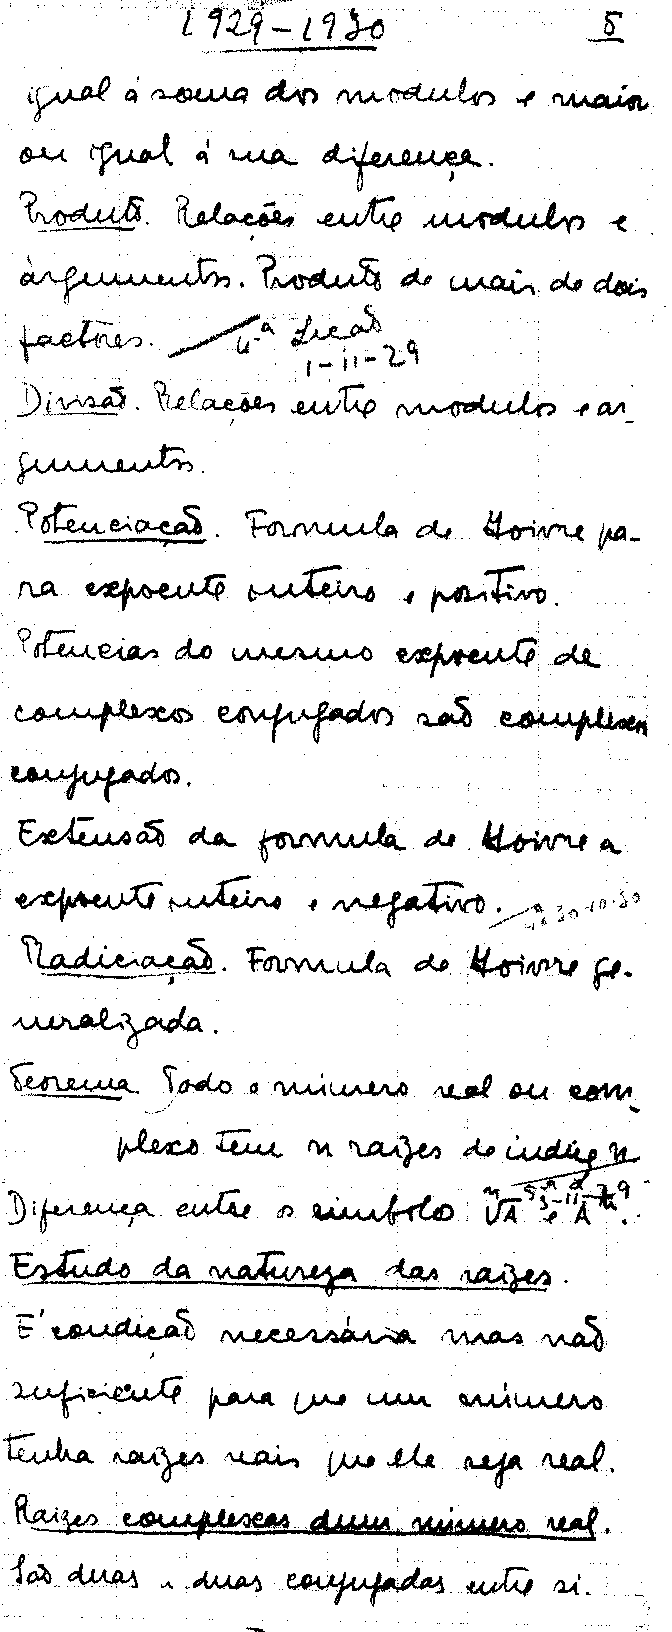 1929-1930 5
igual á soma dos modulos e maior
ou igual á sua diferença.
Produto. Relações entre modulos e
argumentos. Produto de mais de dois
factores. 4.ª Lição
1-11-29
Divisão. Relações entre modulos e ar-
gumentos.
Potenciação. Formula de Moivre pa-
ra expoente inteiro e positivo.
Potencias do mesmo expoente de
complexos conjugados são complexos
conjugados.
Extensão da formula de Moivre a
expoente inteiro e negativo. 30-10-30
Radiciação. Formula de Moivre ge-
neralizada.
Teorema Todo o número real ou com-
plexo tem n raizes de indice n
Diferença entre o simbolo ⁿ√A e
Estudo da natureza das raizes.
E' condição necessária mas não
suficiente para que um número
tenha raizes reais que ele seja real.
Raizes complexas dum número real.
São duas a duas conjugadas entre si.